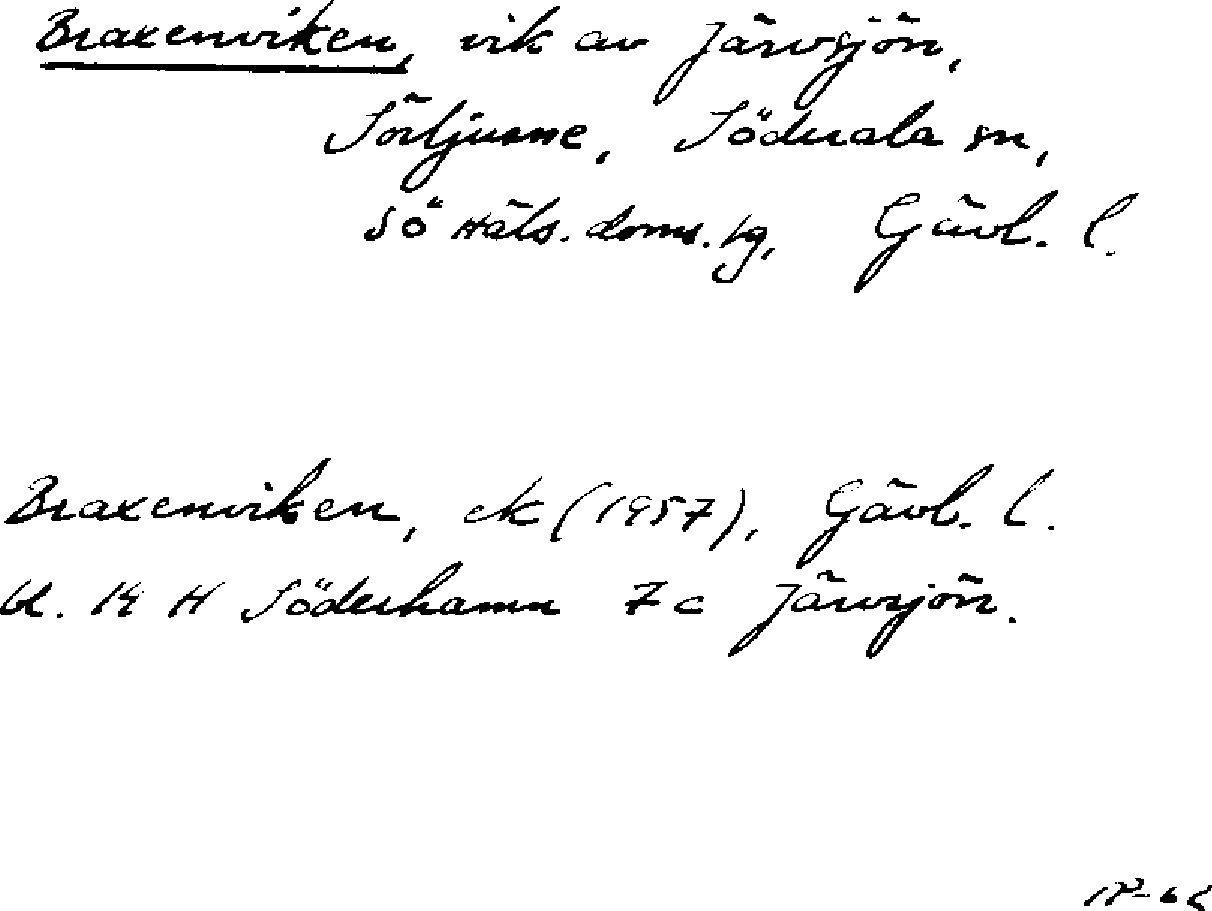 Braxenviken, vik av Järvsjön,
Sörljusne, Söderala sn,
Sö Häls. doms. lg, Gävl. l.
Braxenviken, ek (1957), Gävl. l.
bl. 14 H Söderhamn 7 c Järvsjön.